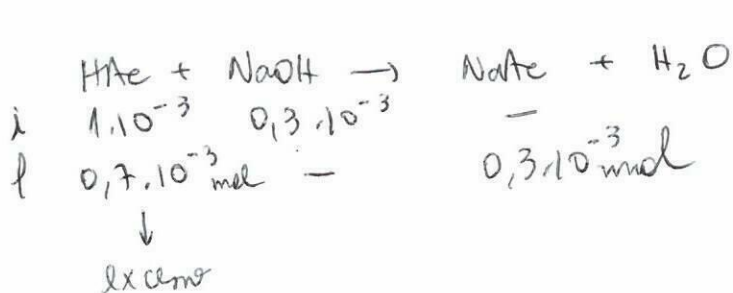 HAc + NaOH → NaAc + H₂O
i 1.10⁻³ 0,3.10⁻³ —
f 0,7.10⁻³ mol — 0,3.10⁻³ mol
↓
exceso